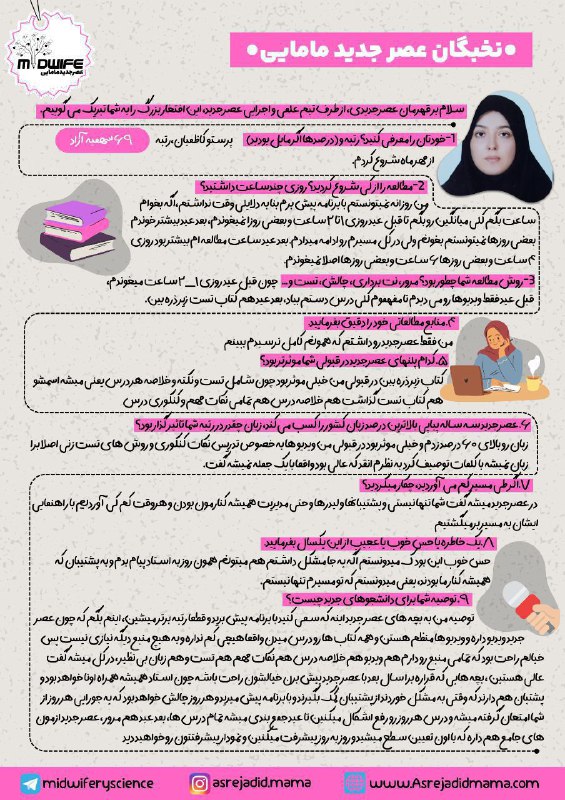 MIDWIFE
عصر جدید مامایی
• نخبگان عصر جدید مامایی •
سلام بر قهرمان عصر جدیدی، از طرف تیم علمی و اجرایی عصر جدید، این افتخار بزرگ را به شما تبریک می گوییم.
1-خودتان را معرفی کنید؟ رتبه و (درصدها اگر مایل بودید) پرستو کاظمیان، رتبه ۶۹ سهمیه آزاد
2-مطالعه را از کی شروع کردید؟ روزی چند ساعت داشتید؟ از مهر ماه شروع کردم.
من روزانه نمیتونستم با برنامه پیش برم بنا به دلایلی وقت نداشتم، اگه بخوام
ساعت بگم کلی میانگین رو بگم تا قبل عید روزی ۱ تا ۲ ساعت و بعضی روزا نمیخوندم، بعد عید بیشتر خوندم
بعضی روزها نمیتونستم بخونم ولی در کل مسیرم رو ادامه میدادم. بعد عید ساعت مطالعه ام بیشتر بود روزی
۴ ساعت و بعضی روزها ۶ ساعت و بعضی روزها اصلا نمیخوندم.
3-روش مطالعه شما چطور بود؟ مرور، نت برداری، چالش، تست و... چون قبل عید روزی ۱_۲ ساعت میخوندم،
قبل عید فقط ویدیوها رو می دیدم تا مفهوم کلی درس دستم بیاد، بعد عید هم کتاب تست زیر ذره بین.
۴.منابع مطالعاتی خود را دقیق بفرمایید
من فقط عصر جدید رو داشتم که همونم کامل نرسیدم ببینم
۵.کدام پلنهای عصر جدید در قبولی شما موثرتر بود؟
کتاب زیر ذره بین در قبولی من خیلی موثر بود چون شامل تست و نکته و خلاصه هر درس یعنی میشه اسمشو
هم کتاب تست گذاشت هم خلاصه درس هم تمامی نکات مهم و کنکوری درس
۶.عصر جدید سه ساله پیاپی بالاترین درصد زبان کشور را کسب می کند، زبان چقدر در رتبه شما تاثیر گذار بود؟
زبان رو بالای ۶۰ درصد زدم و خیلی موثر بود در قبولی من ویدیوها به خصوص تدریس نکات کنکوری و روش های تست زنی اصلا برا
زبان نمیشه با کلمات توصیف کرد به نظرم انقد که عالی بود واقعا با یک جمله نمیشه گفت.
۷.اگر طی مسیر کم می آوردید، چکار میکردید؟
در عصر جدید میشه گفت شما تنها نیستی و پشتیبانها و لیدرها و حتی مدیریت همیشه کنارمون بودن و هر وقت کم می آوردیم با راهنمایی
ایشان به مسیر بر میگشتیم
۸.یک خاطره یا حس خوب یا عجیب از این یکسال بفرمایید
حس خوب این بود که میدونستم اگه به جا مشکل داشتم هم میتونم همون روز به استاد پیام بدم و به پشتیبان که
همیشه کنار ما بودند، یعنی میدونستم که تو مسیرم تنها نیستم.
۹.توصیه شما برای دانشجوهای جدید چیست؟
توصیه من به بچه های عصر جدید اینه که سعی کنید با برنامه پیش برید و قطعا رتبه برتر میشین، اینم بگم که چون عصر
جدید ویدیو داره و ویدیوها منظم هستن و همه کتاب ها رو درس میدن واقعا هیچی کم نداره و به هیچ منبع دیگه نیازی نیست پس
خیالم راحت بود که تمامی منبع رو دارم هم ویدیو هم خلاصه درس هم نکات مهم هم تست و هم زبان بی نظیر، در کل میشه گفت
عالی هستین، بچه هایی که قراره برا سال بعد با عصر جدید پیش برن خیالشون راحت باشه چون استاد همیشه همراه اونا خواهد بود و
پشتبان هم دارند که وقتی به مشکل خوردند از پشتیبان کمک بگیرند و با برنامه پیش میبرند و هر روز چالش خواهد بود که یه جورایی هر روز از
شما امتحان گرفته میشه و درس هر روز رو رفع اشکال میکنین تا عید جمع بندی میشه تمام درس ها، بعد عید هم مرور، عصر جدید آزمون
های جامع هم داره که با اون تعیین سطح میشید و روز به روز پیشرفت میکنین و نمودار پیشرفتتون رو خواهید دید
midwiferyscience
asrejadid.mama
www.Asrejadidmama.com